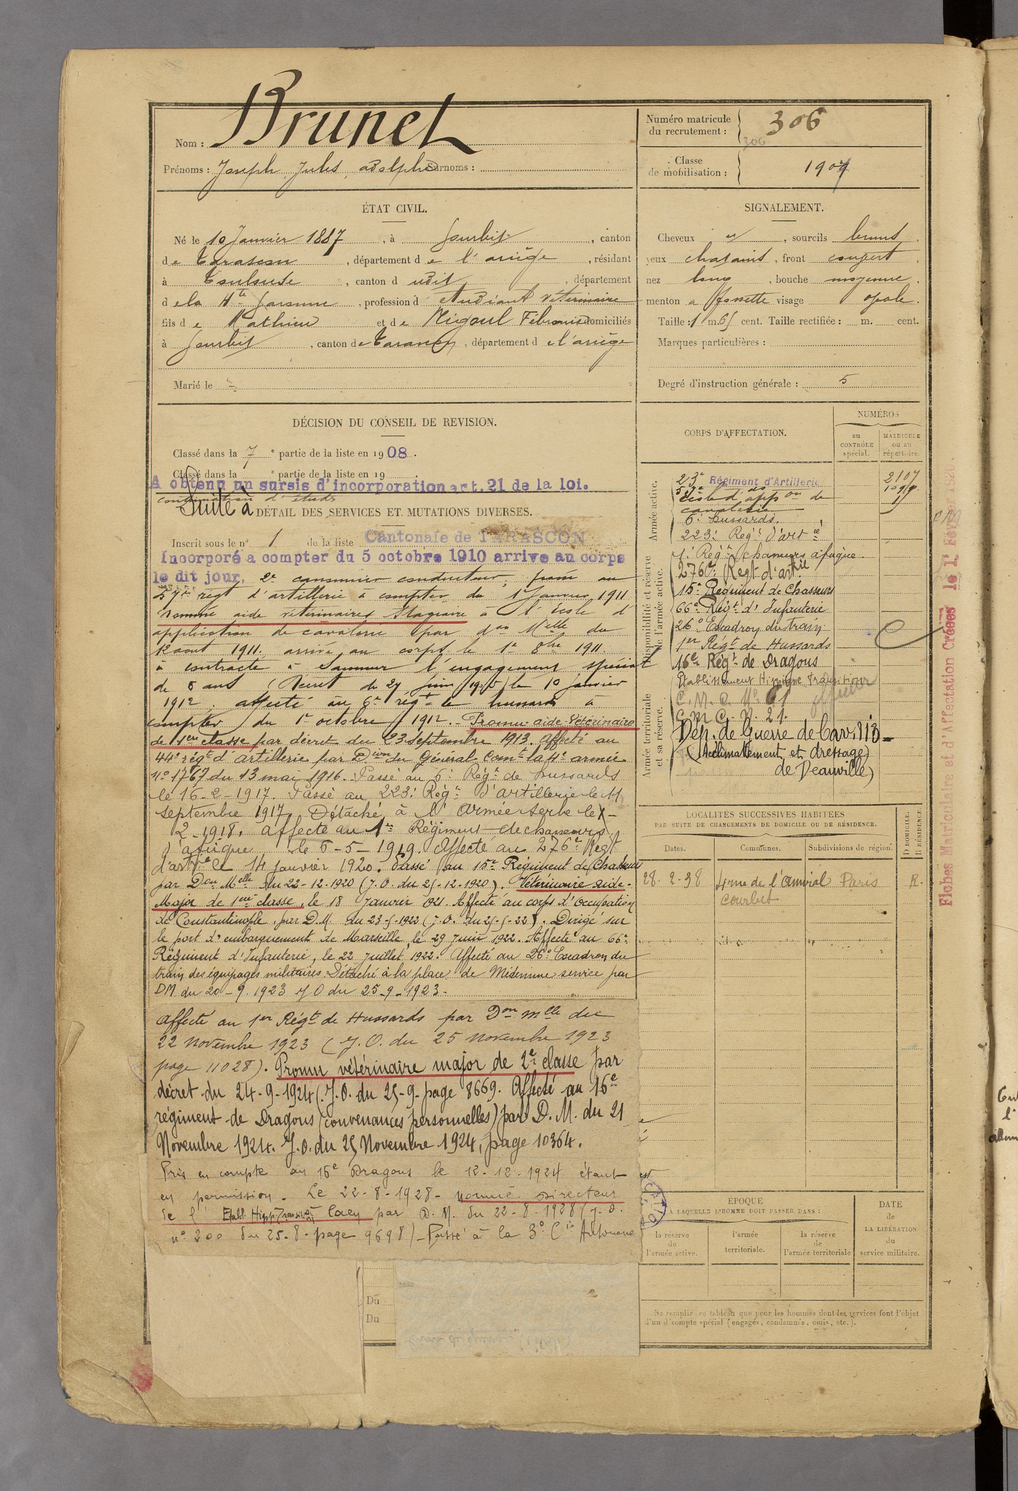 Nom : Brunet
Prénoms : Joseph Jules adolphe Surnoms :
Numéro matricule du recrutement : 306
306
Classe de mobilisation : 1907
ÉTAT CIVIL.
Né le 10 Janvier 1887, à Gourbit, canton
de Tarascon, département de l'ariège, résidant
à Toulouse, canton d udit, département
de la Hte Garonne, profession d' Etudiant Vétérinaire
fils de Mathieu et de Migoul domiciliés
à Gourbit, canton de Tarascon, département de l'ariège
Marié le
SIGNALEMENT.
Cheveux, sourcils bruns
yeux chatains, front couvert
nez long, bouche moyenne
menton a fossette visage ovale
Taille : 1 m. 65 cent. Taille rectifiée : m. cent.
Marques particulières :
Degré d'instruction générale : 5
DÉCISION DU CONSEIL DE REVISION.
Classé dans la 7e partie de la liste en 1908.
Classé dans la e partie de la liste en 19
A obtenu un sursis d'incorporation art. 21 de la loi.
Suite à
DÉTAIL DES SERVICES ET MUTATIONS DIVERSES.
Inscrit sous le n° 1 de la liste Cantonale de TARASCON
Incorporé a compter du 5 octobre 1910 arrive au corps
le dit jour, 2e canonnier conducteur,
régt d'artillerie à compter du 1 janvier 1911
Nommé aide vétérinaire Stagiaire à l'école d'
application de cavalerie par don Melle du
aout 1911. arrivé au corps le 1er 8bre 1911.
a contracté à Saumur l'engagement spécial
de 6 ans le 10 janvier
1912. affecté au 6e régt de hussards à
compter du 1er octobre 1912. Promu aide Vétérinaire
de 1ère classe par décret du 23 septembre 1913. Affecté au
44e régt d'artillerie par Don du Général Comt la armée
n° 1767 du 13 mai 1916. Passé au 6e Régt de hussards
le 16-2-1917. Passé au 223e Régt d'Artillerie le 11
septembre 1917. Détaché à l'Armée serbe le
2-1918. affecté au 1er Régiment de chasseurs
d'afrique le 6-5-1919. Affecté au 276e Regt
d'artie le 14 janvier 1920. Passé au 15e Régiment de Chasseurs
par Don Melle du 22-12-1920 (J.O. du 25-12-1920). Vétérinaire aide-
Major de 1ère classe, le 18 Janvier 1921. Affecté au corps d'occupation
de Constantinople, par D.M. du 23-5-1922 (J.O. du 25-5-22). Dirigé sur
le port d'embarquement de Marseille le 29 Juin 1922. Affecté au 66e
Régiment d'Infanterie, le 22 Juillet 1922. Affecté au 26e Escadron du
train des équipages militaires. Détaché à la place de service par
DM du 20-9-1923 JO du 25-9-1923.
Affecté au 1er Régt de Hussards par Don Melle du
22 novembre 1923 (J.O. du 25 novembre 1923
page 11028). Promu vétérinaire major de 2e classe par
décret du 24-9-1924 (J.O. du 25-9-page 8669. Affecté au 16e
régiment de Dragons (convenances personnelles) par D.M. du 21
Novembre 1924. J.O. du 25 Novembre 1924, page 10364.
Pris en compte au 16e Dragons le 12-12-1924 étant
en permission. Le 22-8-1928 nommé Directeur
de l' Etabl. Hipp. Transit. à Lacy par D.M. du 22-8-1928 (J.O.
n° 200 du 25-8-page 9698) Passé à la 3e Cie Autonome
Du
Du
CORPS D'AFFECTATION.
NUMÉROS
AU CONTRÔLE SPÉCIAL.
MATRICULE OU AU RÉPERTOIRE.
Armée active.
Disponibilité et réserve de l'armée active.
Armée territoriale et sa réserve.
23e Régiment d'Artillerie 2107
école d'appon de
cavalerie
6e hussards.
223e Régt d'artie
1er Régt Chasseurs afrique
276e Régt d'artie
15e Régiment de Chasseurs
66e Régt d'Infanterie
26e Escadron du train
1er Régt de Hussards
16e Régt de Dragons
Etablissement Hippique Transition
C.M.C. N° 21.
Dép. de Guerre de
(Acclimatement et dressage)
de Deauville)
LOCALITÉS SUCCESSIVES HABITÉES
PAR SUITE DE CHANGEMENTS DE DOMICILE OU DE RÉSIDENCE.
Dates.
Communes.
Subdivisions de région.
D. DOMICILE. R. RÉSIDENCE.
28-2-38 4 rue de l'Amiral Paris R.
Courbet
ÉPOQUE
À LAQUELLE L'HOMME DOIT PASSER DANS :
la réserve de l'armée active.
l'armée territoriale.
la réserve de l'armée territoriale
DATE DE LA LIBÉRATION du service militaire.
Ne remplir ce tableau que pour les hommes dont les services font l'objet
d'un décompte spécial (engagés, condamnés, omis, etc.).
Fiches Matriculaire et d'Affectation Créées le 1